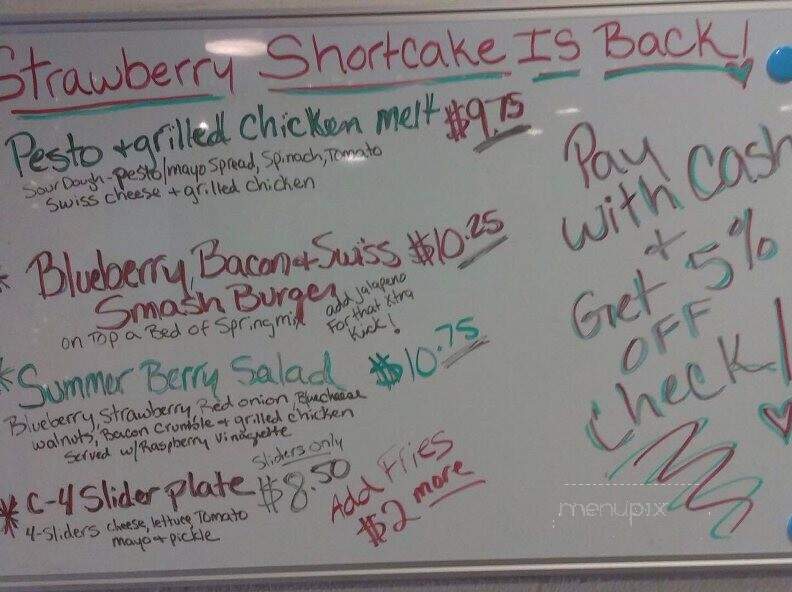 Strawberry Shortcake Is Back!
Pesto + grilled chicken melt $9.75
Sour Dough - pesto/mayo spread, spinach, Tomato
Swiss cheese + grilled chicken
* Blueberry, Bacon + Swiss $10.25
Smash Burger
on Top a Bed of Spring mix
add jalapeno
For that xtra
Kick!
* Summer Berry Salad $10.75
Blueberry, Strawberry, Red onion, Bluecheese
walnuts, Bacon Crumble + grilled chicken
Served w/Raspberry Vinagrette
* C-4 Slider plate $8.50
Sliders only
4-Sliders cheese, lettuce, Tomato
mayo + pickle
Add Fries
$2 more
Pay
with Cash
+
Get 5%
OFF
Check!
menupix